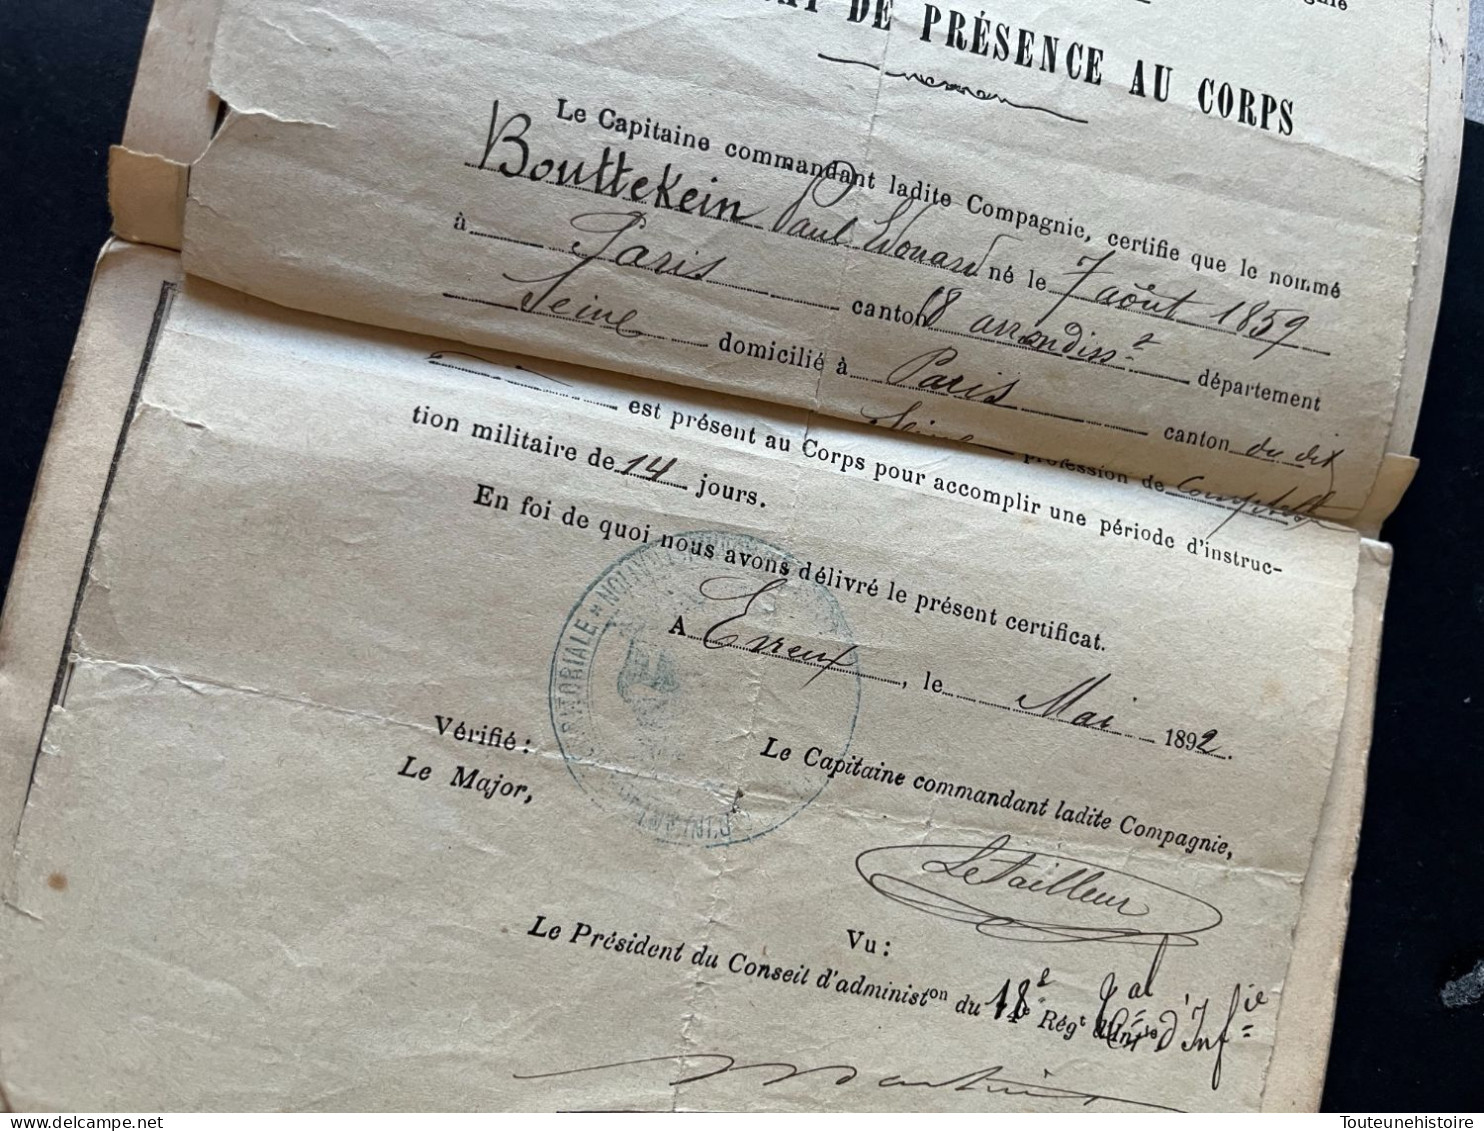 DE PRÉSENCE AU CORPS
Le Capitaine commandant ladite Compagnie, certifie que le nommé
Bouttekein Paul Edouard né le 7 août 1859
à Paris canton 18 arrondisst département
Seine domicilié à Paris canton du dit
Seine profession de
est présent au Corps pour accomplir une période d'instruc-
tion militaire de 14 jours.
En foi de quoi nous avons délivré le présent certificat.
A Evreux, le Mai 1892.
Vérifié :
Le Major,
Le Capitaine commandant ladite Compagnie,
LeTailleur
Vu :
Le Président du Conseil d'administon du 18e Régt d'Infie
TERRITORIALE * 
D'INFANTERIE
Touteunehistoire